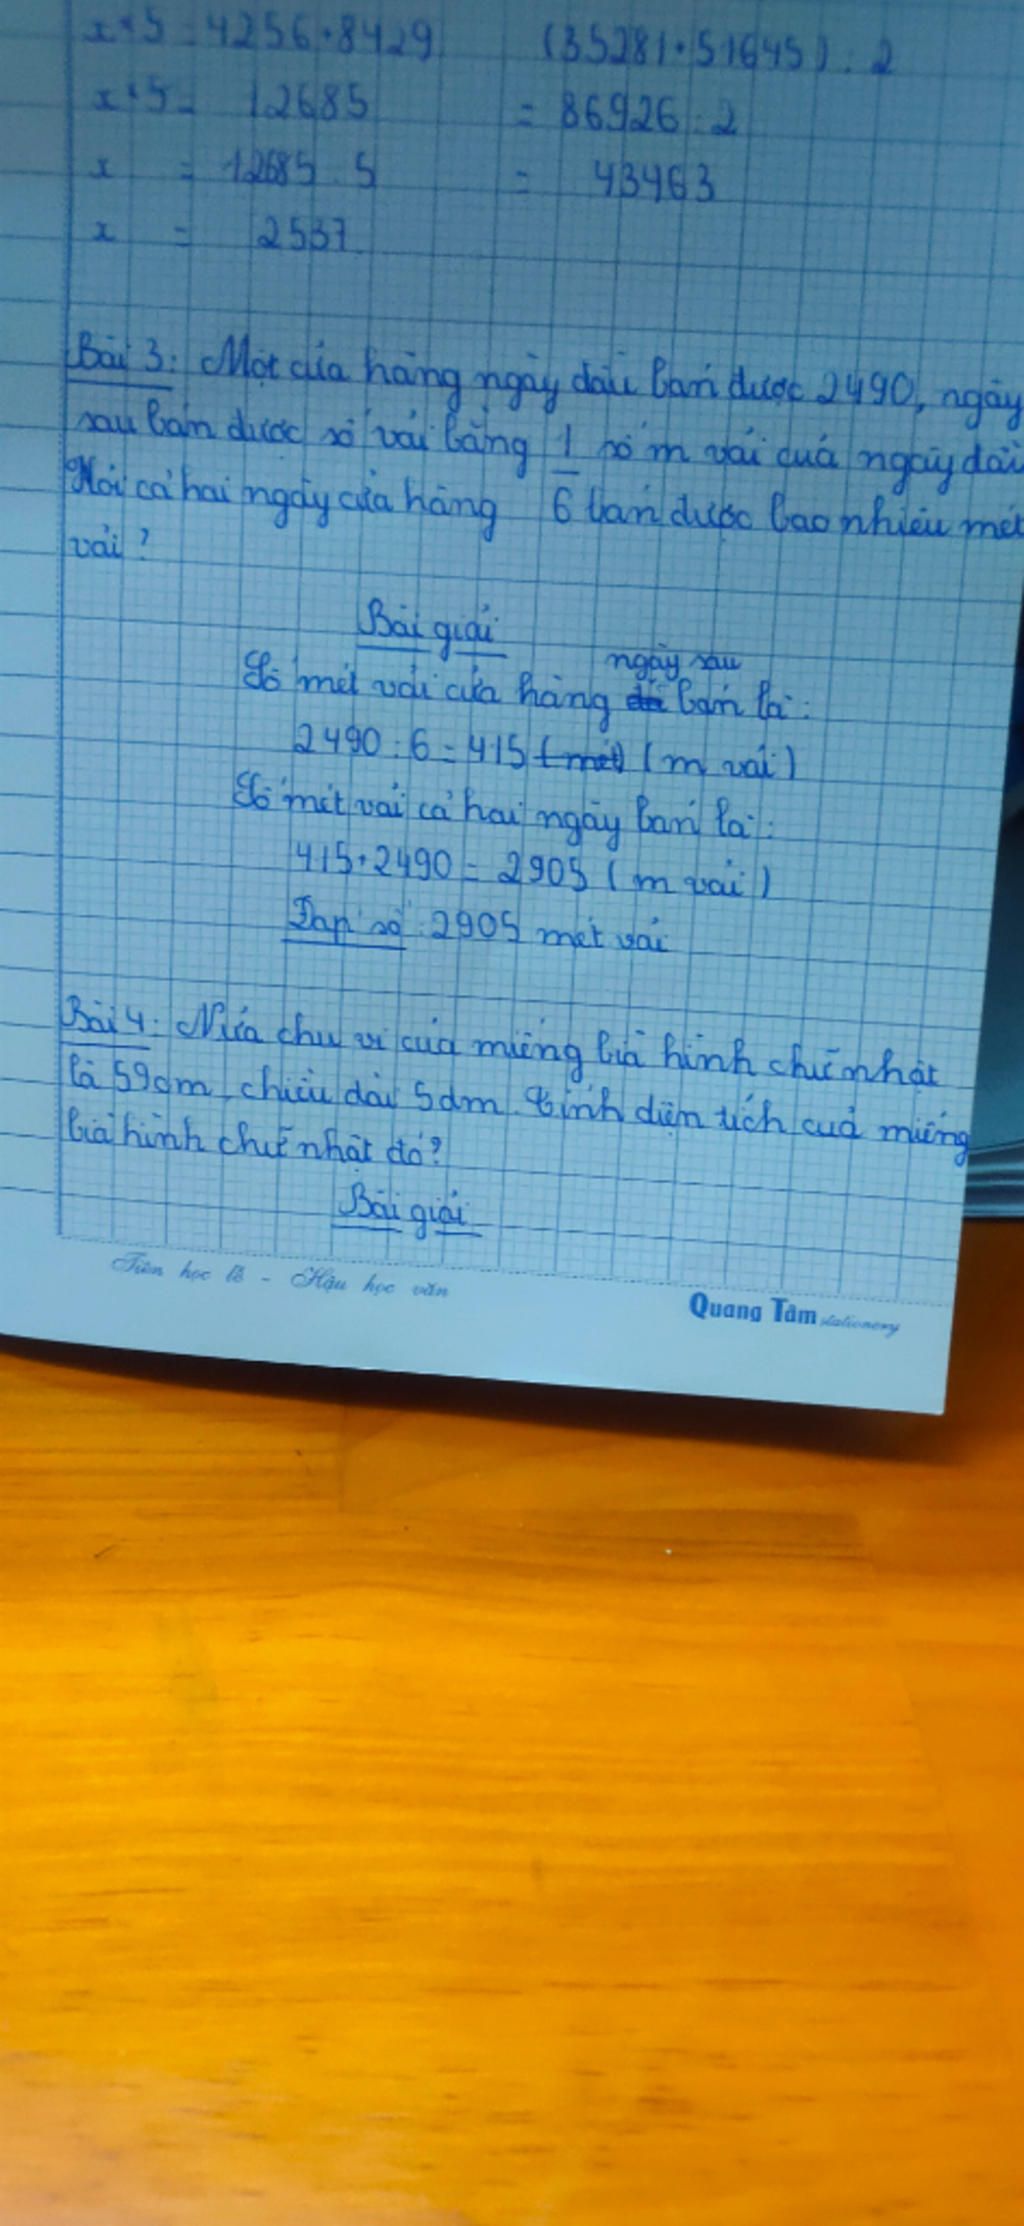 x × 5 = 4256 + 8429 (35281 + 51645) : 2
x × 5 = 12685 = 86926 : 2
x = 12685 : 5 = 43463
x = 2537
Bài 3: Một cửa hàng ngày đầu bán được 2490, ngày
sau bán được số vải bằng 1/6 số m vải cuả ngày đầu
Hỏi cả hai ngày cửa hàng bán được bao nhiêu mét
vải?
Bài giải
ngày sau
Số mét vải cửa hàng bán là:
2490 : 6 = 415 (mét) (m vải)
Số mét vải cả hai ngày bán là:
415 + 2490 = 2905 (m vải)
Đáp số: 2905 mét vải
Bài 4: Nửa chu vi cuả miếng bìa hình chữ nhật
là 59cm, chiều dài 5dm. Tính diện tích cuả miếng
bìa hình chữ nhật đó?
Bài giải
Tiên học lễ - Hậu học văn
Quang Tâm stationery